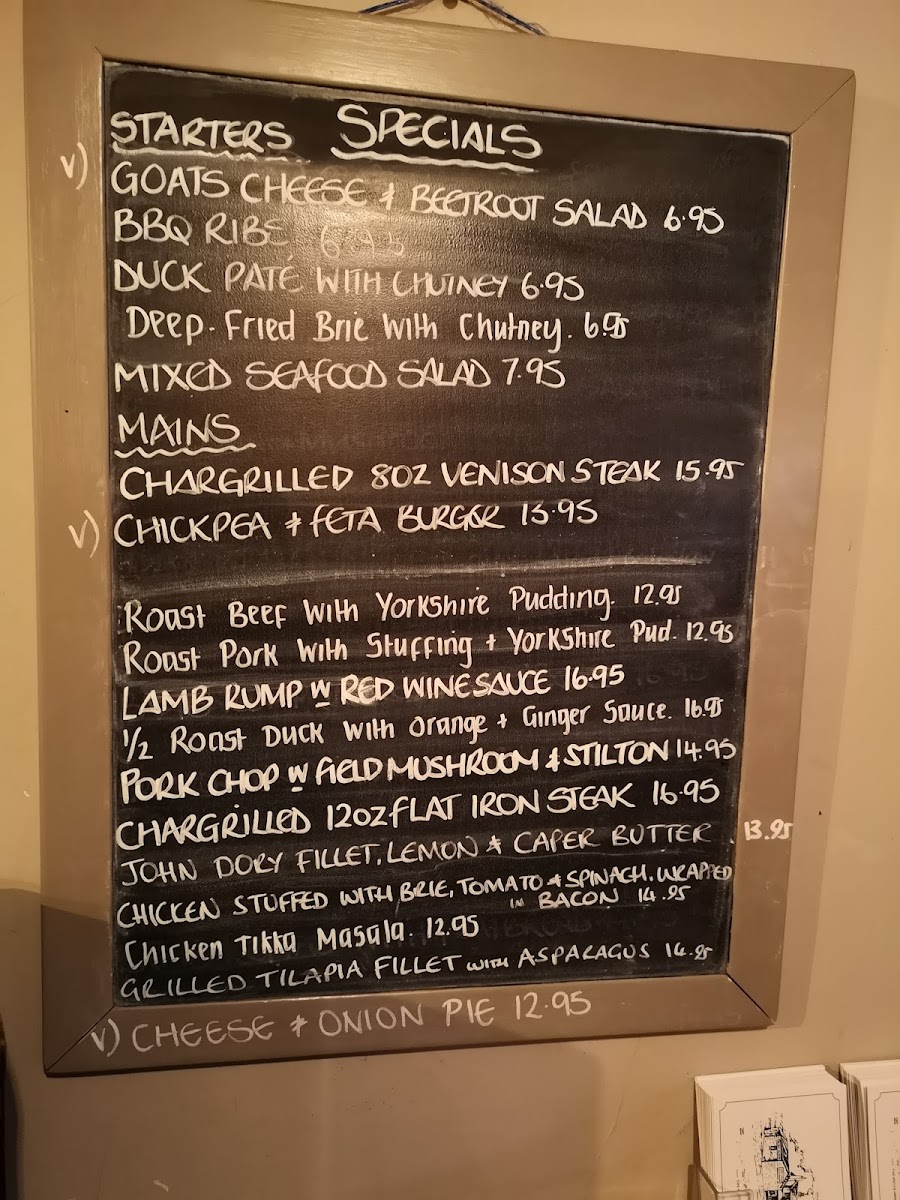 STARTERS SPECIALS
V) GOATS CHEESE & BEETROOT SALAD 6.95
BBQ RIBS 6.95
DUCK PATÉ WITH CHUTNEY 6.95
Deep-Fried Brie With Chutney. 6.95
MIXED SEAFOOD SALAD 7.95
MAINS
CHARGRILLED 8OZ VENISON STEAK 15.95
V) CHICKPEA & FETA BURGER 13.95
Roast Beef With Yorkshire Pudding. 12.95
Roast Pork With Stuffing + Yorkshire Pud. 12.95
LAMB RUMP W RED WINE SAUCE 16.95
1/2 Roast Duck With Orange + Ginger Sauce. 16.95
PORK CHOP W FIELD MUSHROOM & STILTON 14.95
CHARGRILLED 12OZ FLAT IRON STEAK 16.95
JOHN DORY FILLET, LEMON & CAPER BUTTER. 13.95
CHICKEN STUFFED WITH BRIE, TOMATO & SPINACH. WRAPPED
IN BACON 14.95
Chicken Tikka Masala. 12.95
GRILLED TILAPIA FILLET WITH ASPARAGUS 14.95
V) CHEESE & ONION PIE 12.95